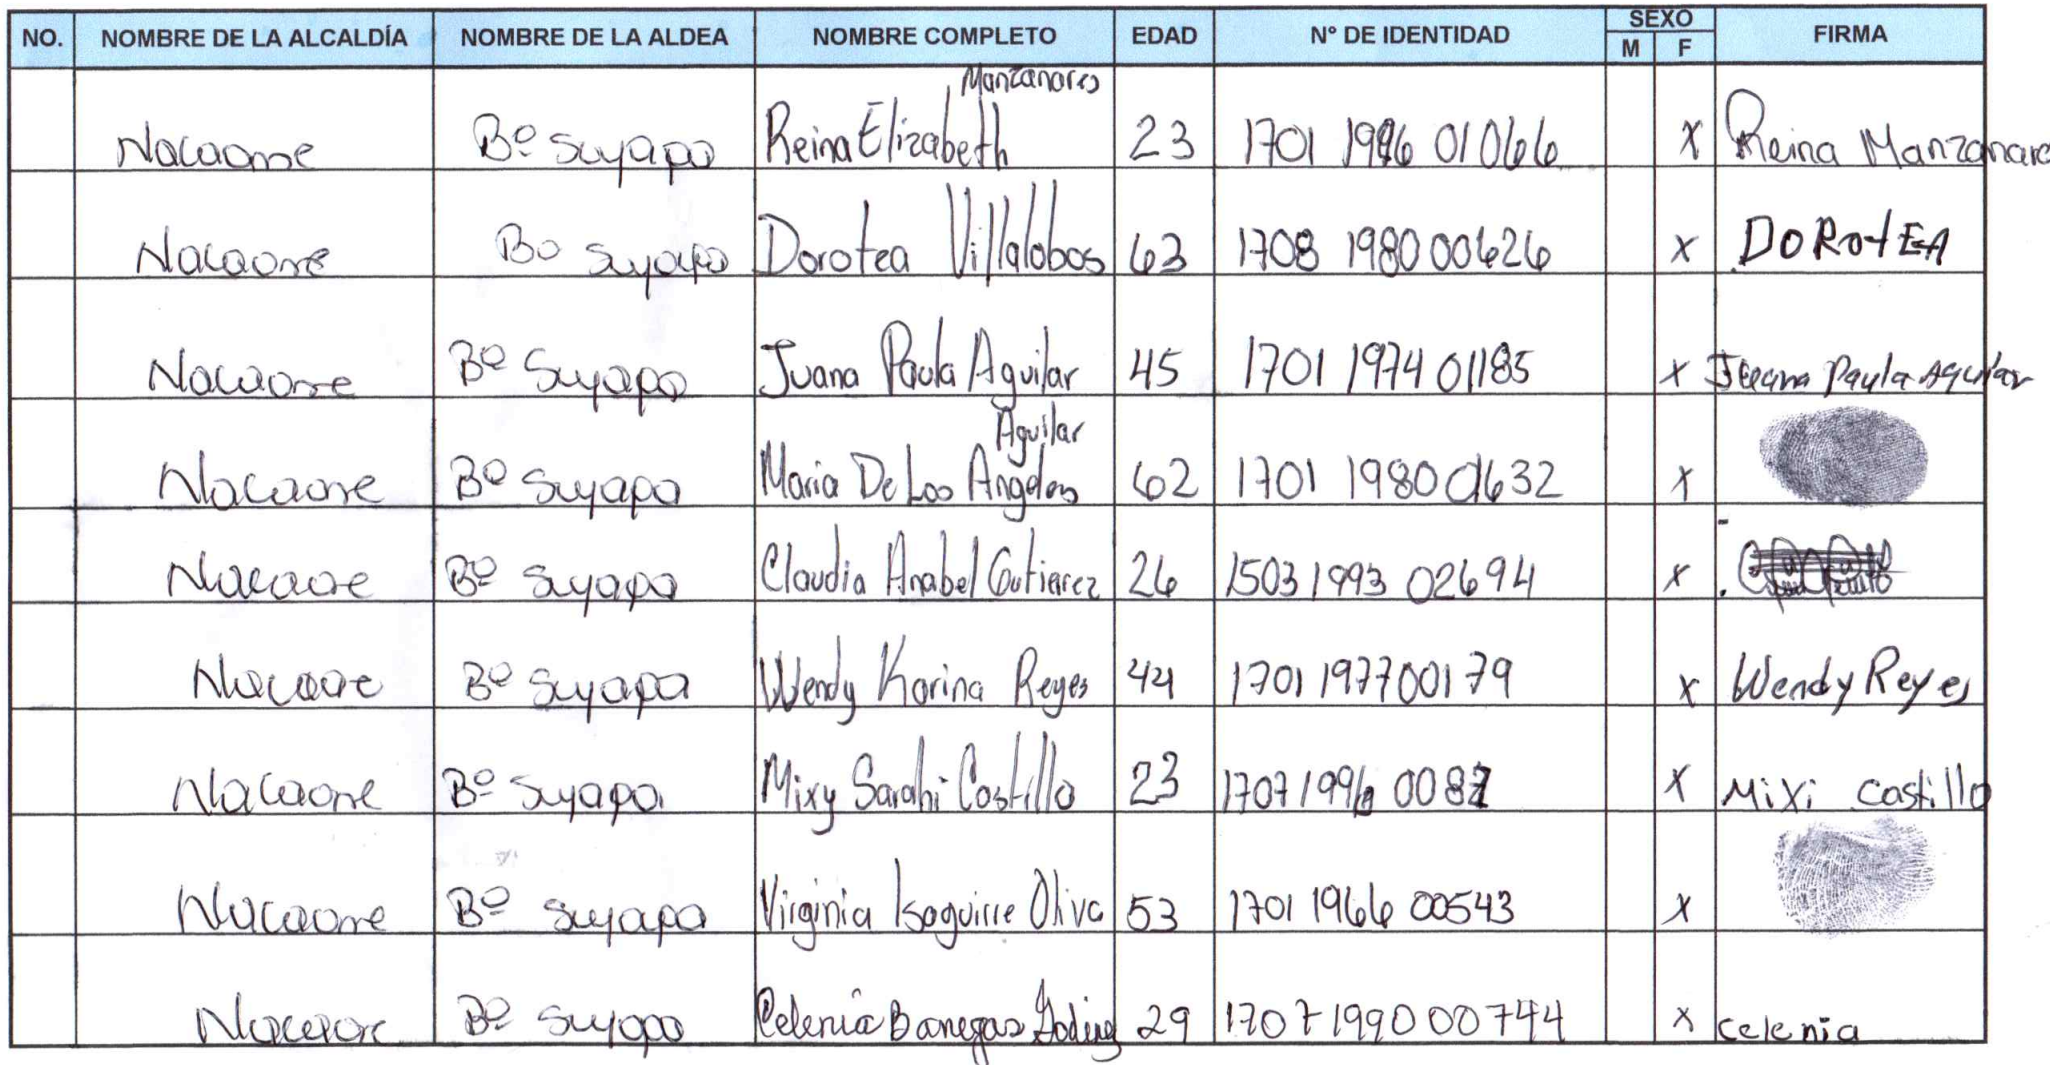 NO. NOMBRE DE LA ALCALDÍA NOMBRE DE LA ALDEA NOMBRE COMPLETO EDAD N° DE IDENTIDAD SEXO M F FIRMA
Nacaome Bº Suyapa Reina Elizabeth Manzanares 23 1701 1996 01066 X Reina Manzanare
Nacaome Bo Suyapa Dorotea Villalobos 63 1708 1980 00626 X DOROtEA
Nacaome Bº Suyapa Juana Paula Aguilar 45 1701 1974 01185 X Juana Paula Aguilar
Nacaome Bº Suyapa Maria De Los Angeles Aguilar 62 1701 1980 01632 X
Nacaome Bº Suyapa Claudia Anabel Gutierrez 26 1503 1993 02694 X
Nacaome Bº Suyapa Wendy Karina Reyes 44 1701 1977 00179 X Wendy Reyes
Nacaome Bº Suyapa Mixy Sarahi Castillo 23 1707 1996 0087 X Mixi Castillo
Nacaome Bº Suyapa Virginia Isaguirre Oliva 53 1701 1966 00543 X
Nacaome Bº Suyapa Celenia Banegas 29 1707 1990 00744 X celenia